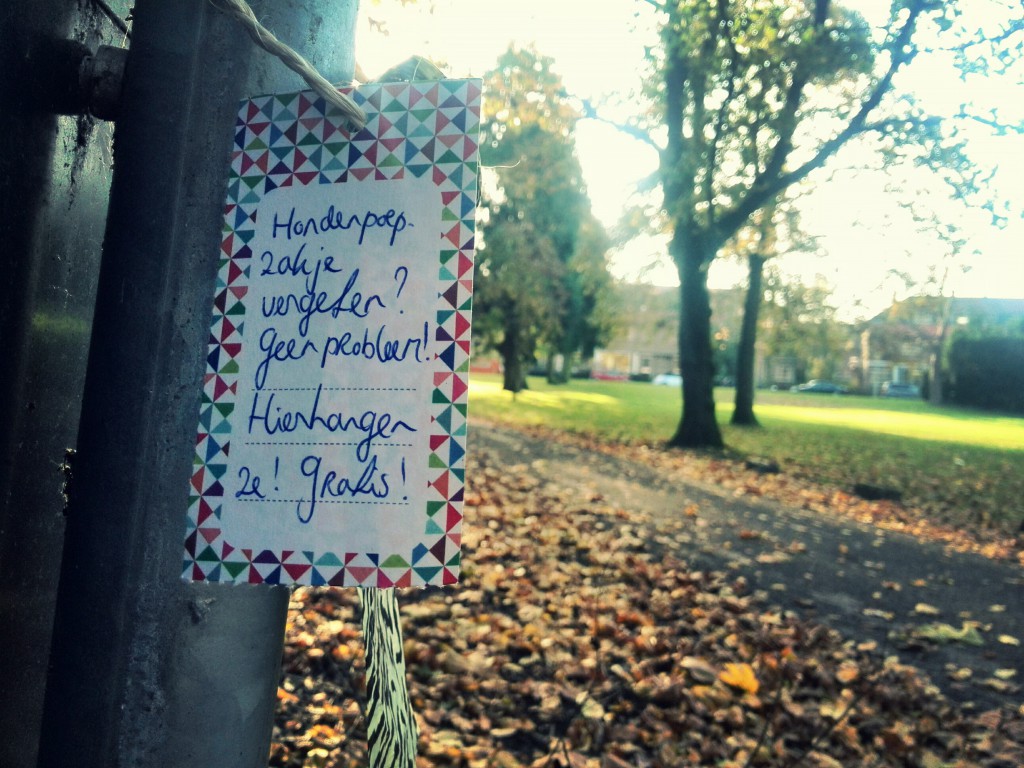 Hondenpoep-
zakje
vergeten?
Geen probleem!
Hier hangen
ze! Gratis!